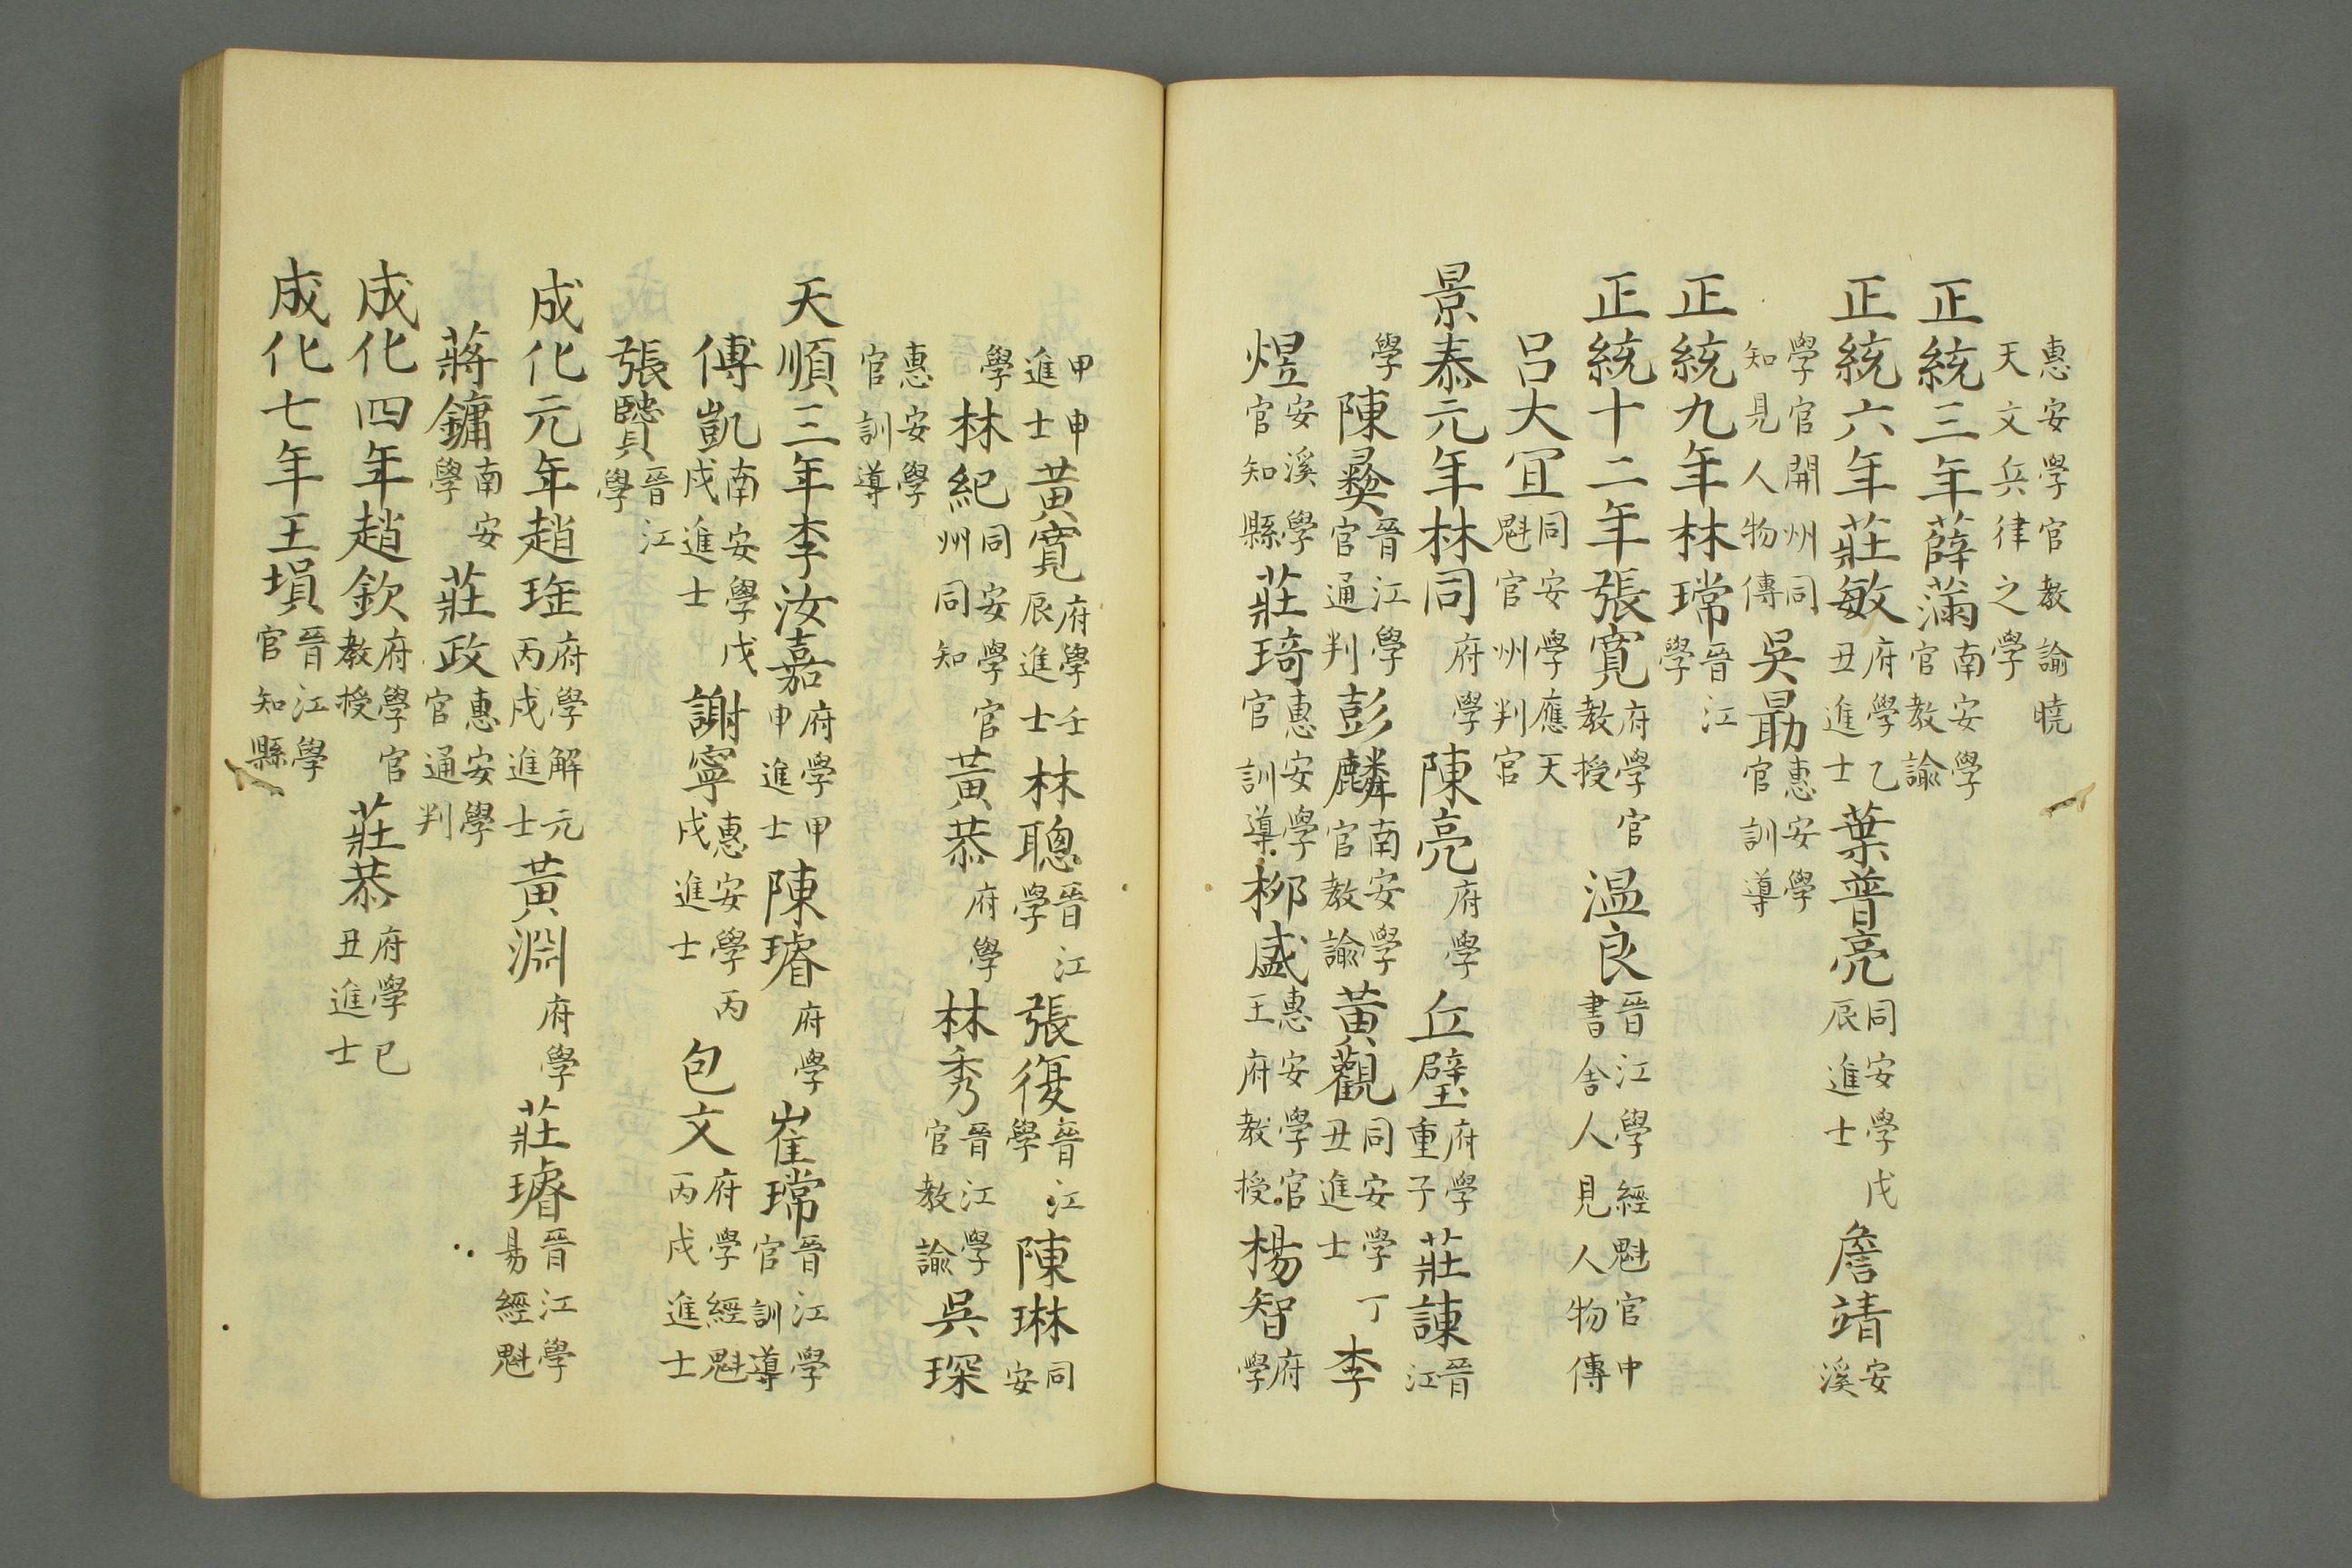 惠安學官教諭曉
天文兵律之學
正統三年薛𤀹南安學官教諭
正統六年莊敏府學乙丑進士葉普亮同安學戊辰進士詹靖安溪
學官開州同知見人物傳吳勗惠安學官訓導
正統九年林瑺晉江學
正統十二年張寬府學官教授温良晉江學經魁官中書舍人見人物傳
呂大宜同安學應天魁官州判官
景泰元年林同府學陳亮府學丘璧府學重子莊諫晉江
學陳彝晉江學官通判彭麟南安學官教諭黃觀同安學丁丑進士李
煜安溪學官知縣莊琦惠安學官訓導柳盛惠安學官王府教授楊智府學
甲申進士黃寬府學壬辰進士林聰晉江學張復晉江學陳琳同安
學林紀同安學官州同知黃恭府學林秀晉江學官教諭吳琛
惠安學官訓導
天順三年李汝嘉府學甲申進士陳璿府學崔瑺晉江學官訓導
傅凱南安學戊戌進士謝寧惠安學丙戌進士包文府學經魁丙戌進士
張贒晉江學
成化元年趙珤府學解元丙戌進士黃淵府學莊璿晉江學易經魁
蔣鏞南安學莊政惠安學官通判
成化四年趙欽府學官教授莊恭府學己丑進士
成化七年王塤晉江學官知縣